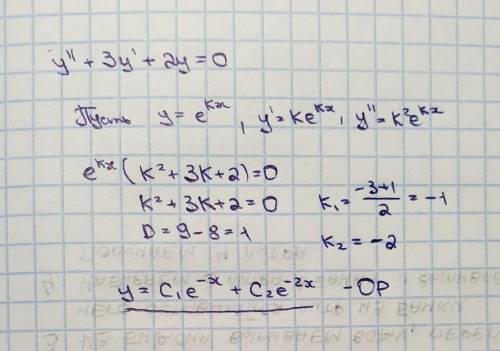 y'' + 3y' + 2y = 0
Пусть y = e^{kx}, y' = ke^{kx}, y'' = k²e^{kx}
e^{kx}(k² + 3k + 2) = 0
k² + 3k + 2 = 0
D = 9 - 8 = 1
k₁ = \frac{-3+1}{2} = -1
k₂ = -2
y = C₁e^{-x} + C₂e^{-2x} - ОР